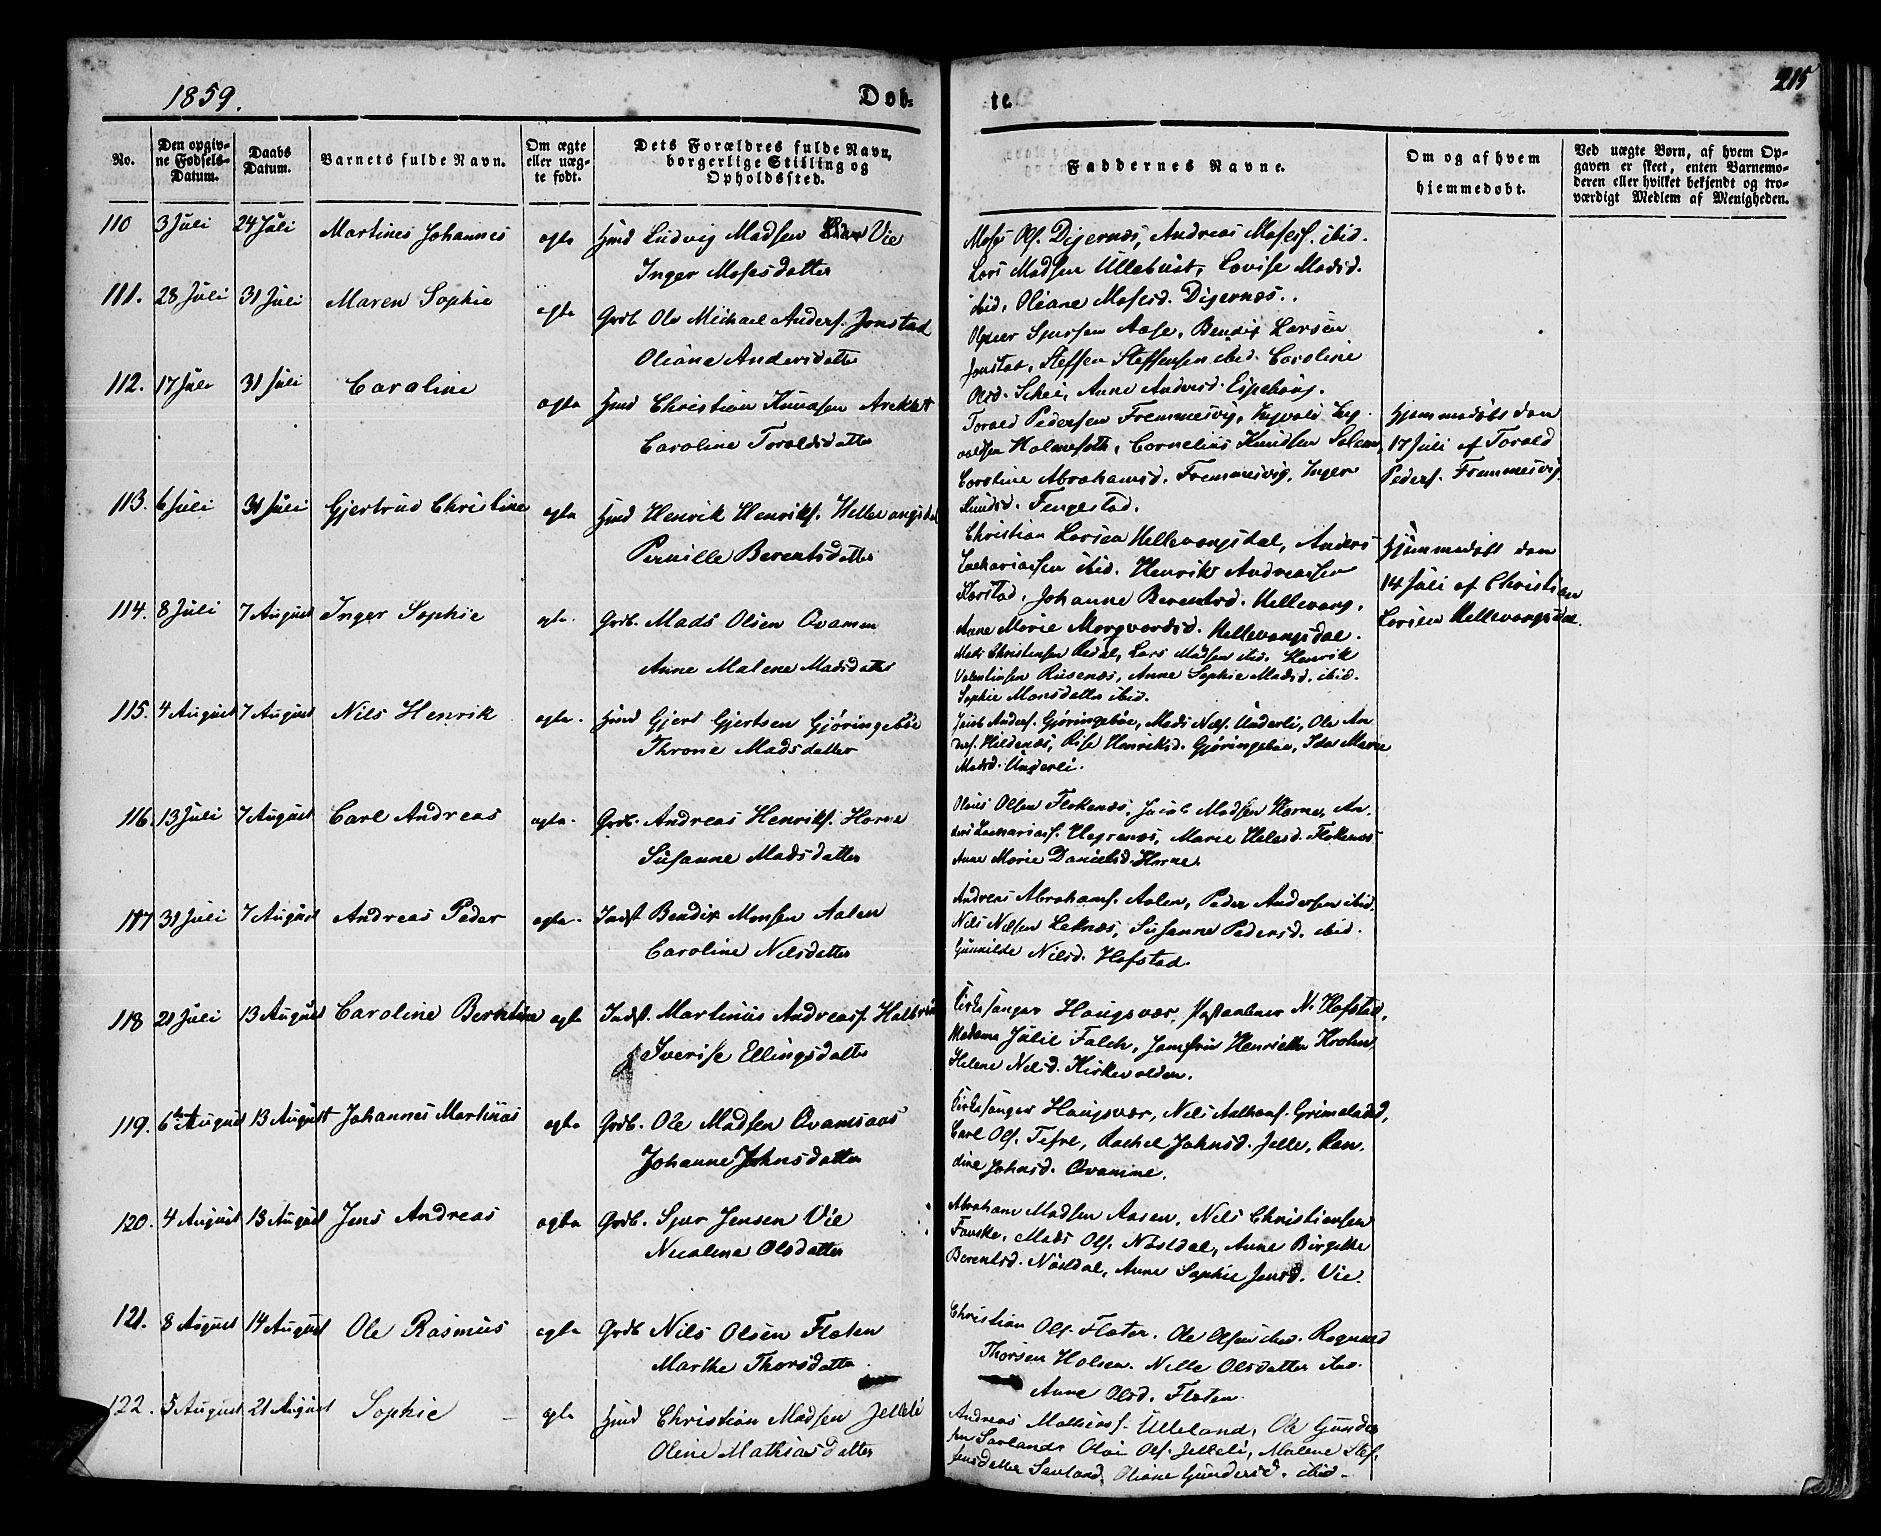 1859.
Døb-
te.
215
No.
Den opgiv-
ne Fødsels-
Datum.
Daabs
Datum.
Barnets fulde Navn.
Om ægte
eller uæg-
te født.
Dets Forældres fulde Navn,
borgerlige Stilling og
Opholdssted.
Faddernes Navne.
Om og af hvem
hjemmedøbt.
Ved uægte Børn, af hvem Op-
gaven er skeet, enten Barnemo-
deren eller hvilket bekjendt og tro-
værdigt Medlem af Menigheden.
110 3 Juli 24 Juli Martines Johannes ægte Hmd Ludvig Madsen Vie
Inger Mosesdatter
Moses Ols. Digernæs, Andreas Moses. ibid.
Lars Madsen Ullebust, Lovise Madsd.
ibid, Oliane Mosesd. Digernæs.
111. 28 Juli 31 Juli Maren Sophie ægte Grdb. Ole Michael Anders. Jonstad
Oliane Andersdatter
Sjursen Aase, Bendix Larsen
Jonstad, Steffen Steffensen ibid. Caroline
Olsd. Schei, Anne Andersd. Espehoug.
112. 17 Juli 31 Juli Caroline ægte Hmd Christian Knudsen Areklet
Caroline Toraldsdatter
Torald Pedersen Fremmesvig, Ingvald Ing-
valdsen Holmesøth, Cornelius Knudsen Solem,
Caroline Abrahamsd. Fremmesvig, Inger
Knudsd. Fengestad.
Hjemmedøbt den
17 Juli af Torald
Peders. Fremmesvig.
113. 6 Juli 31 Juli Gjertrud Christine ægte Hmd Henrik Henriks. Hellevangsdal
Pernille Berentsdatter
Christian Larsen Hellevangsdal, Anders
Zachariassen ibid. Henrik Andreassen
Johanne Berentsd. Hellevang,
Anne Marie Margvardsd. Hellevangsdal.
Hjemmedøbt den
14 Juli af Christian
Larsen Hellevangsdal.
114. 8 Juli 7 August Inger Sophie ægte. Grdb. Mads Olsen Qvamm
Anne Malene Madsdatter
Mads Christensen Redal, Lars Madsen ibid. Henrik
Valentinsen Risenæs, Anne Sophie Madsd. ibid.
Sophie Monsdatter ibid.
115. 4 August 7 August Nils Henrik ægte. Hmd Gjert Gjertsen Gjøringebøe
Throne Madsdatter
Jacob Anders. Gjøringebøe, Mads Nils. Underli, Ole An-
ders. Hildenæs, Henriksd. Gjøringebøe, Ida Marie
Madsd. Underli.
116. 13 Juli 7 August Carl Andreas ægte. Grdb. Andreas Henriks. Horne
Susanne Madsdatter
Olaus Olsen Flokenæs, Jacob Madsen Horne, An-
ders Zacharias. Hegrenæs, Marie Nilsd. Flokenæs
Anne Marie Danielsd. Horne.
117 31 Juli 7 August Andreas Peder ægte. Indst Bendix Monsen Aalen
Caroline Nilsdatter
Andreas Abrahams. Aalen, Peder Andersen ibid.
Nils Nilsen Leknæs, Susanne Pedersd. ibid.
Gunnilde Nilsd. Hofstad.
118 21 Juli 13 August Caroline Berntine ægte Indst. Martinus Andreas.
Iverise Ellingsdatter
Kirkesanger Hougsvær, Postaabner N. Hofstad,
Madame Julie Falch, Jomfru Henriette Krohn,
Helene Nilsd. Kirkevolden.
119. 6te August 13 August Johannes Martinus ægte Grdb. Ole Madsen Qvamsaas
Johanne Johnsdatter
Kirkesanger Hougsvær, Nils Grimelied,
Carl Ols. Tefre, Rachel Johnsd. Jelle, Ran-
dine Johnsd. Qvamme.
120. 4 August 13 August Jens Andreas ægte Grdb. Sjur Jensen Vie
Nicoline Olsdatter
Abraham Madsen Aasen, Nils Christiansen
Fauske, Mads Ols. Nøstdal, Anne Birgitte
Berentsd. Nøstdal, Anne Sophie Jensd. Vie.
121. 8 August 14 August Ole Rasmus ægte Grdb Nils Olsen Flaten
Marthe Thorsdatter
Christian Ols. Flaten. Ole Olsen ibid. Rognald
Thorsen Holsen. Nille Olsdatter ibid.
Anne Olsd. Flaten.
122. 5 August 21 August Sophie ægte Hmd Christian Madsen Jelleli
Oline Mathiasdatter
Andreas Mathias. Ulleland, Ole Gunder-
sen Savland, Olai Ols. Jelleli, Malene Stef-
fensdatter Savland, Oliane Gundersd. ibid.